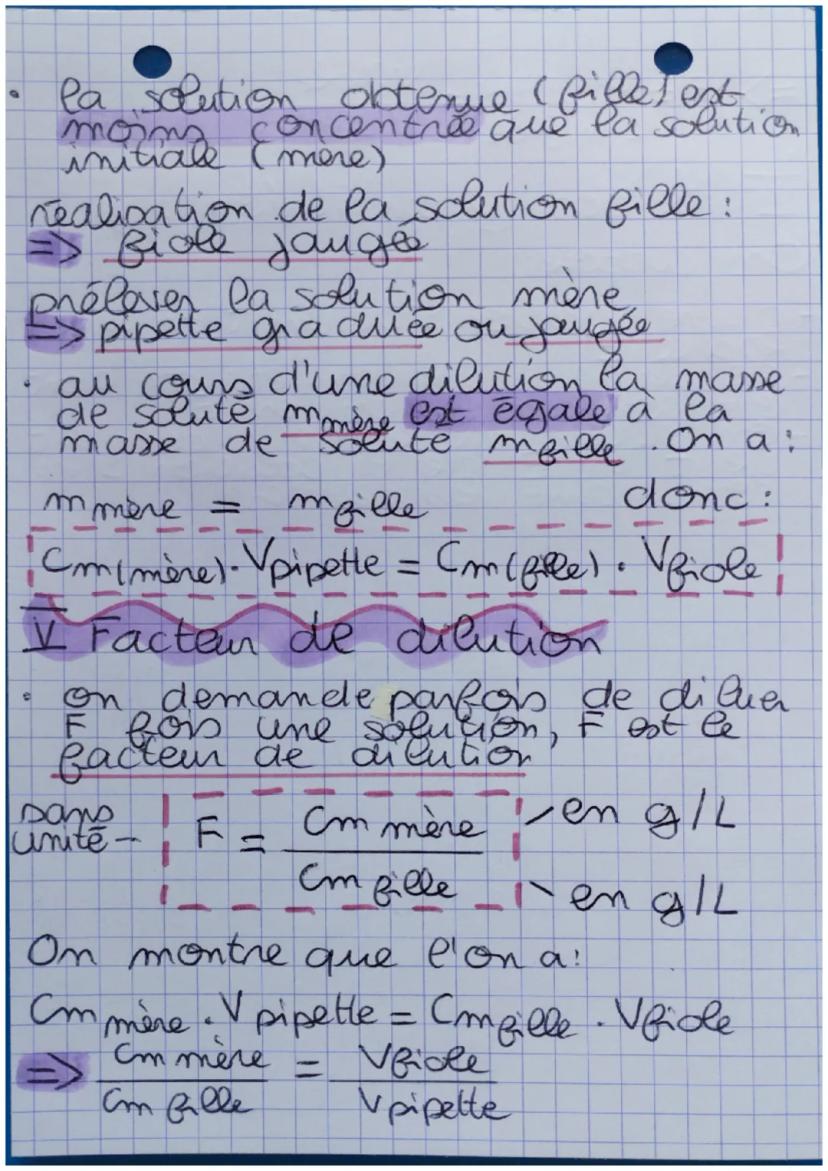 • la solution obtenue (fille) est
moins concentrée que la solution
initiale (mère)
réalisation de la solution fille :
=> fiole jaugée
prélever la solution mère
=> pipette graduée ou jaugée
• au cours d'une dilution la masse
de soluté m mère est égale à la
masse de soluté m fille. On a :
m mère = m fille donc :
Cm(mère) . Vpipette = Cm(fille) . Vfiole
V Facteur de dilution
• on demande parfois de diluer
F fois une solution, F est le
facteur de dilution
sans unité - F = Cm mère / Cm fille - en g/L - en g/L
On montre que l'on a :
Cm mère . Vpipette = Cm fille . Vfiole
=> Cm mère / Cm fille = Vfiole / Vpipette